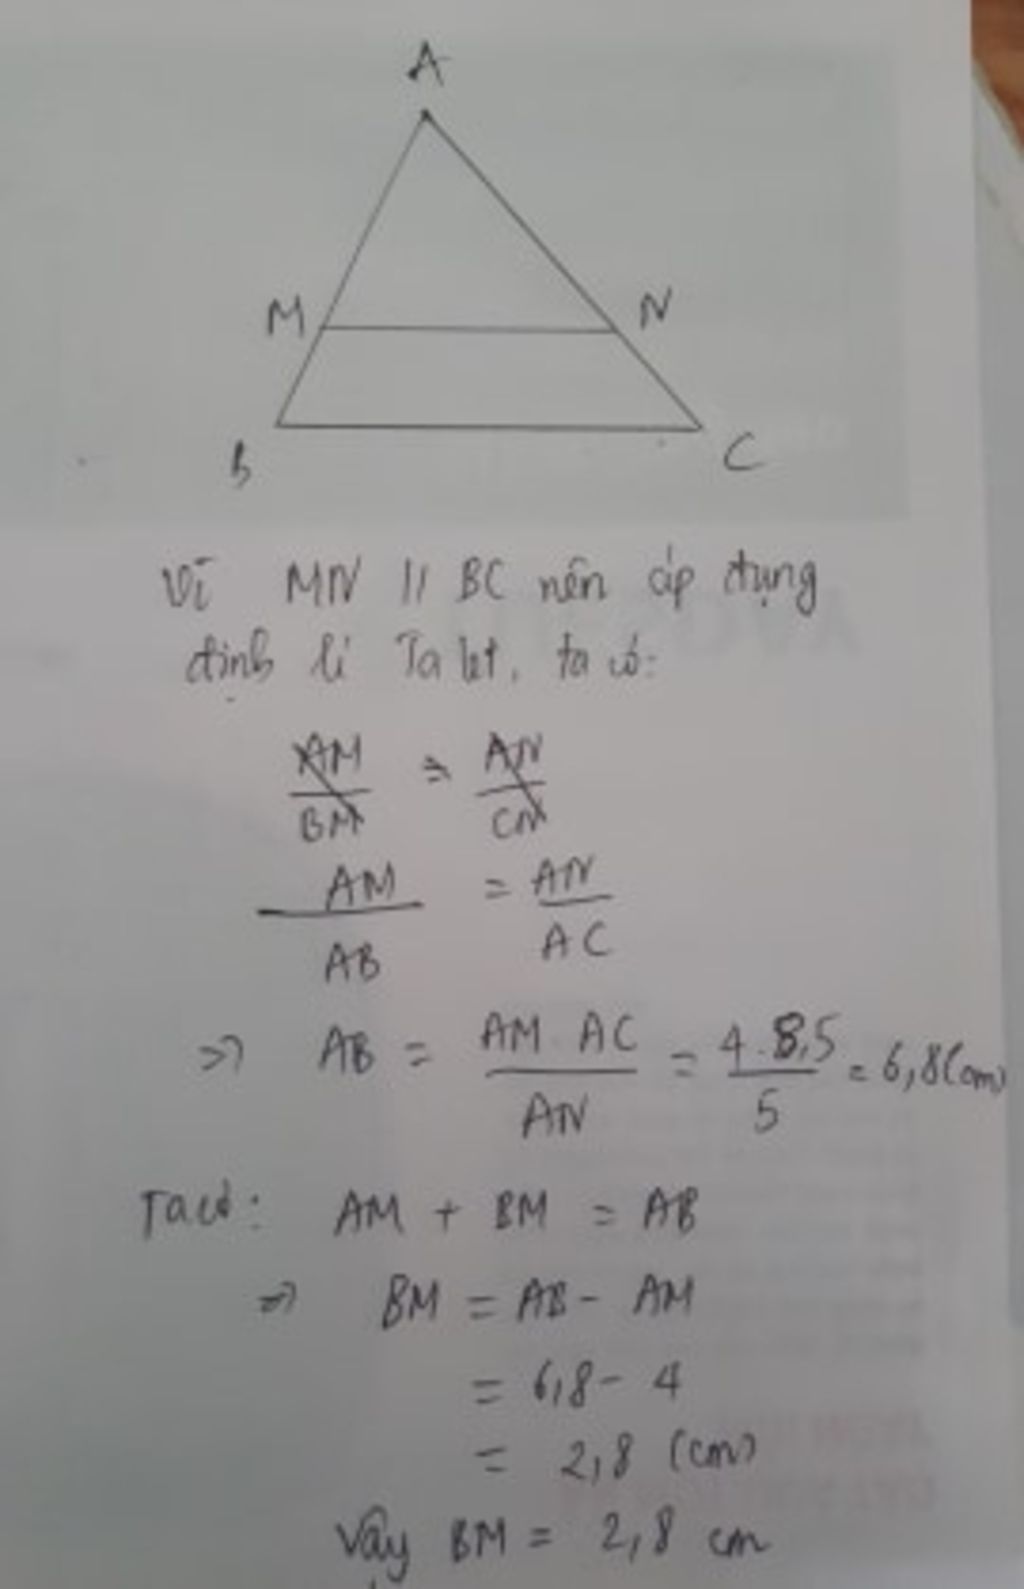 A
M N
B C
Vì MN // BC nên áp dụng
định lí Ta let, ta có:
AM/BM = AN/CN
AM/AB = AN/AC
=> AB = AM. AC/AN = 4.8,5/5 = 6,8(cm)
Ta có: AM + BM = AB
=> BM = AB - AM
= 6,8 - 4
= 2,8 (cm)
Vậy BM = 2,8 cm